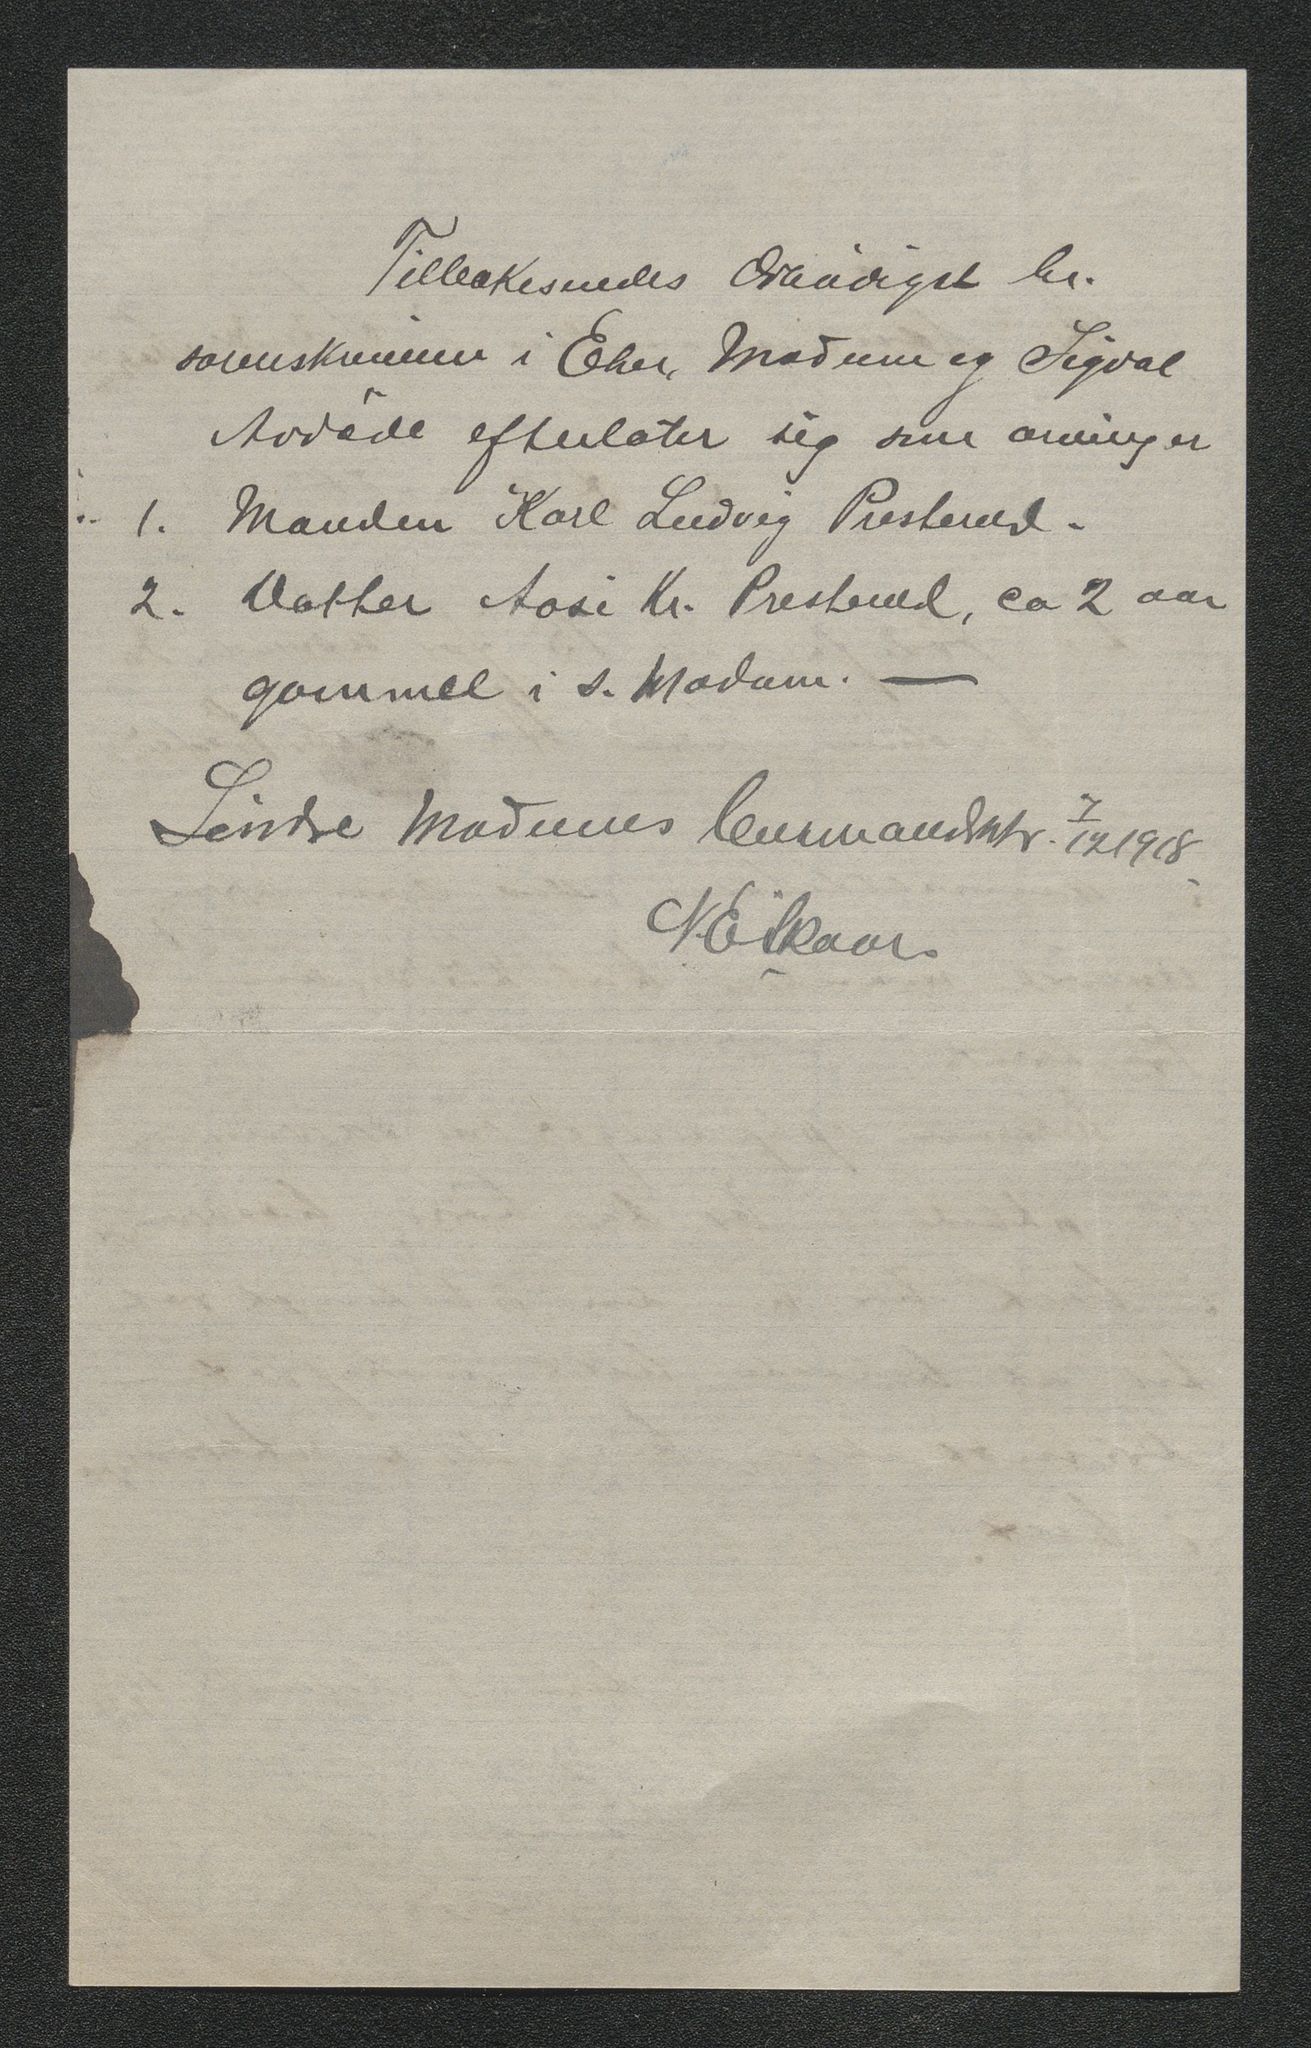 Tilbakesendes ærbødigst hr.
sorenskriveren i Eker, Modum og Sigdal
Avdøde efterlater sig som arvinger
1. Manden Karl Ludvig Presterud.
2. Datter Aase Kr. Presterud, ca 2 aar
gammel i s. Modum. —
Søndre Modums lensmandsktr. 7/12 1918.
N. Eikaar.